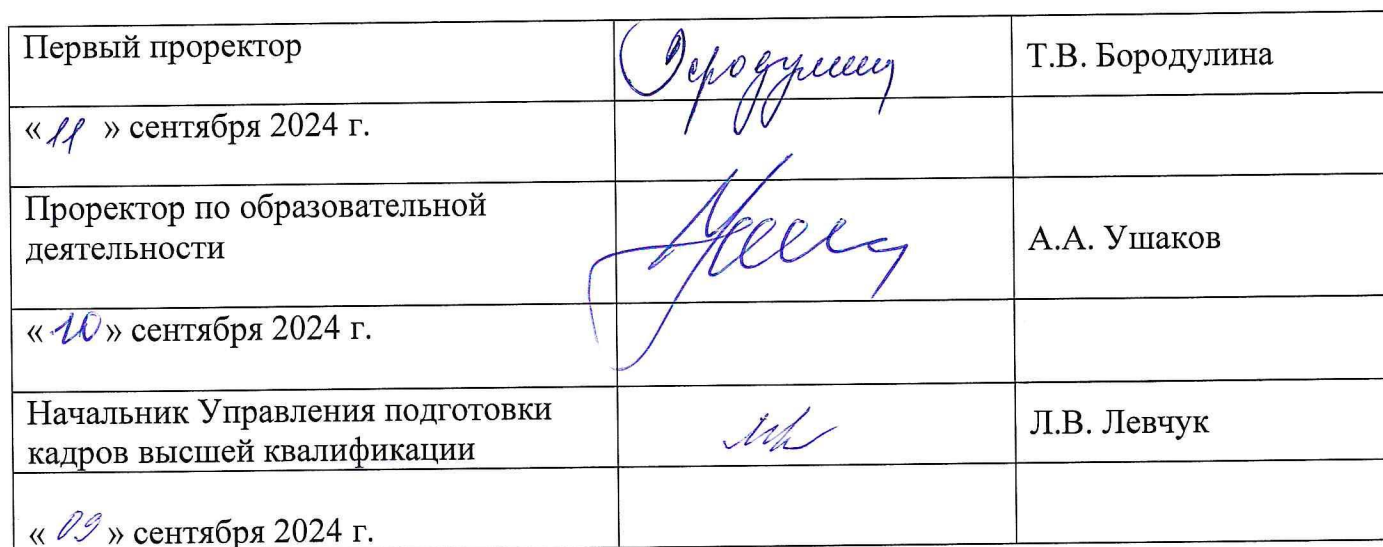 Первый проректор
Т.В. Бородулина
« 11 » сентября 2024 г.
Проректор по образовательной
деятельности
А.А. Ушаков
« 10 » сентября 2024 г.
Начальник Управления подготовки
кадров высшей квалификации
Л.В. Левчук
« 09 » сентября 2024 г.